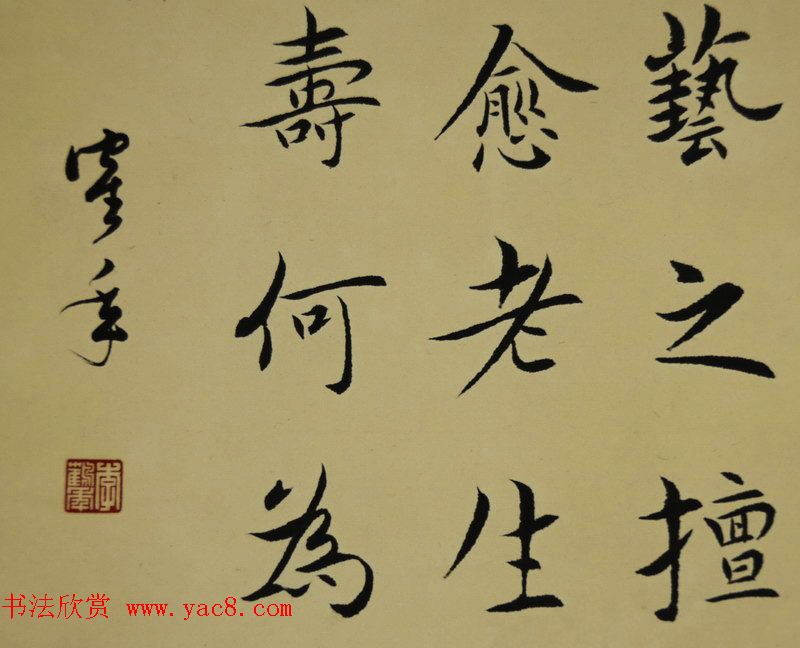 藝之擅
愈老生
壽何為
寉年
李鶴年
书法欣赏 www.yac8.com